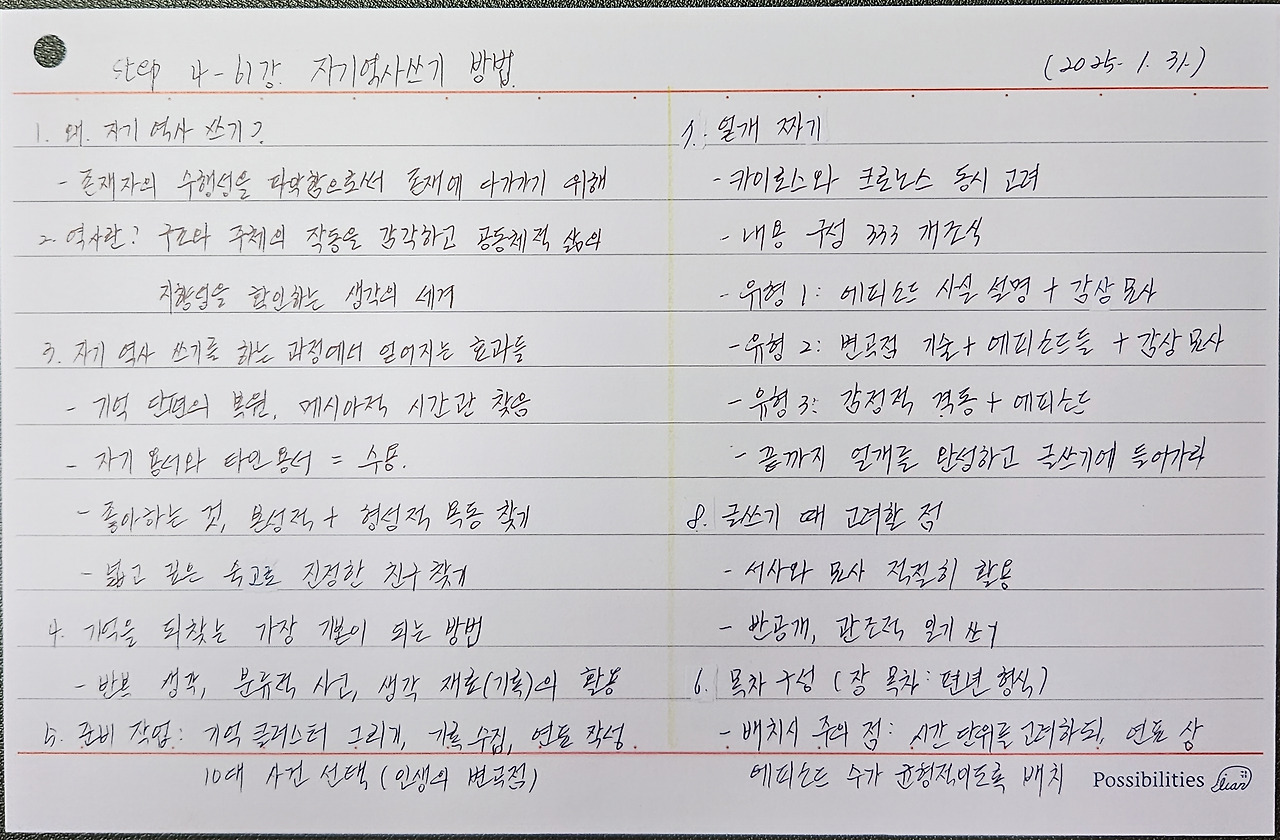 Step 4-61강. 자기역사쓰기 방법.
(2025. 1. 31.)
1. 왜. 자기 역사 쓰기?
- 존재자의 수행성을 파악함으로써 존재에 다가가기 위해
2. 역사란? 구조와 주체의 작동을 감각하고 공동체적 삶의
지향성을 확인하는 생각의 세계
3. 자기 역사 쓰기를 하는 과정에서 얻어지는 효과들
- 기억 단편의 복원, 메시아적 시간관 찾음
- 자기 용서와 타인 용서 = 수용.
- 좋아하는 것, 본성적 + 형성적 욕동 찾기
- 넓고 깊은 숙고로 진정한 친구 찾기
4. 기억을 되찾는 가장 기본이 되는 방법
- 반복 생각, 분류적 사고, 생각 재료(기록)의 활용
5. 준비 작업: 기억 클러스터 그리기, 기록 수집, 연표 작성
10대 사건 선택 (인생의 변곡점)
7. 얼개 짜기
- 카이로스와 크로노스 동시 고려
- 내용 구성 333 개조식
- 유형 1: 에피소드 사실 설명 + 감상 묘사
- 유형 2: 변곡점 기술 + 에피소드들 + 감상 묘사
- 유형 3: 감정적 격동 + 에피소드
- 끝까지 얼개를 완성하고 글쓰기에 들어가라
8. 글쓰기 때 고려할 점
- 서사와 묘사 적절히 활용
- 반공개, 관조적 일기 쓰기
6. 목차 구성 (장 목차: 편년 형식)
- 배치시 주의 점: 시간 단위를 고려하되, 연표 상
에피소드 수가 균형적이도록 배치
Possibilities